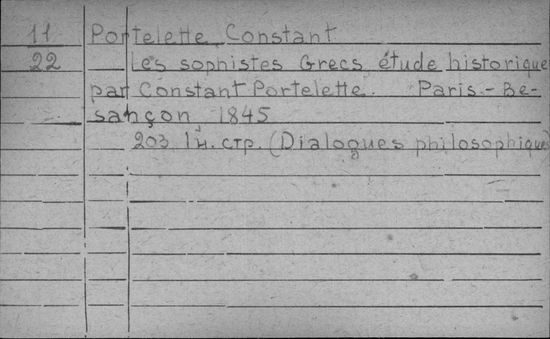 11 Portelette Constant
22 Les sophistes Grecs étude historique
par Constant Portelette. Paris.-Be-
sançon 1845
203, 1 н. стр. (Dialogues philosophiques)